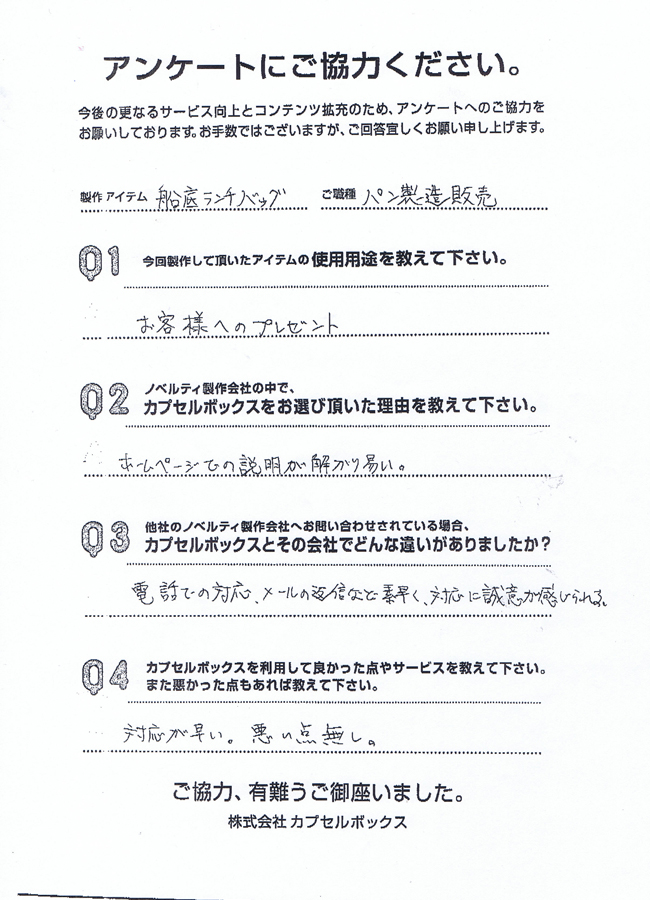 アンケートにご協力ください。
今後の更なるサービス向上とコンテンツ拡充のため、アンケートへのご協力を
お願いしております。お手数ではございますが、ご回答宜しくお願い申し上げます。
製作アイテム 船底ランチバッグ ご職種 パン製造販売
Q1 今回製作して頂いたアイテムの使用用途を教えて下さい。
お客様へのプレゼント
Q2 ノベルティ製作会社の中で、
カプセルボックスをお選び頂いた理由を教えて下さい。
ホームページでの説明が解がり易い。
Q3 他社のノベルティ製作会社へお問い合わせされている場合、
カプセルボックスとその会社でどんな違いがありましたか?
電話での対応、メールの返信など素早く、対応に誠意が感じられる。
Q4 カプセルボックスを利用して良かった点やサービスを教えて下さい。
また悪かった点もあれば教えて下さい。
対応が早い。悪い点無し。
ご協力、有難うご御座いました。
株式会社 カプセルボックス